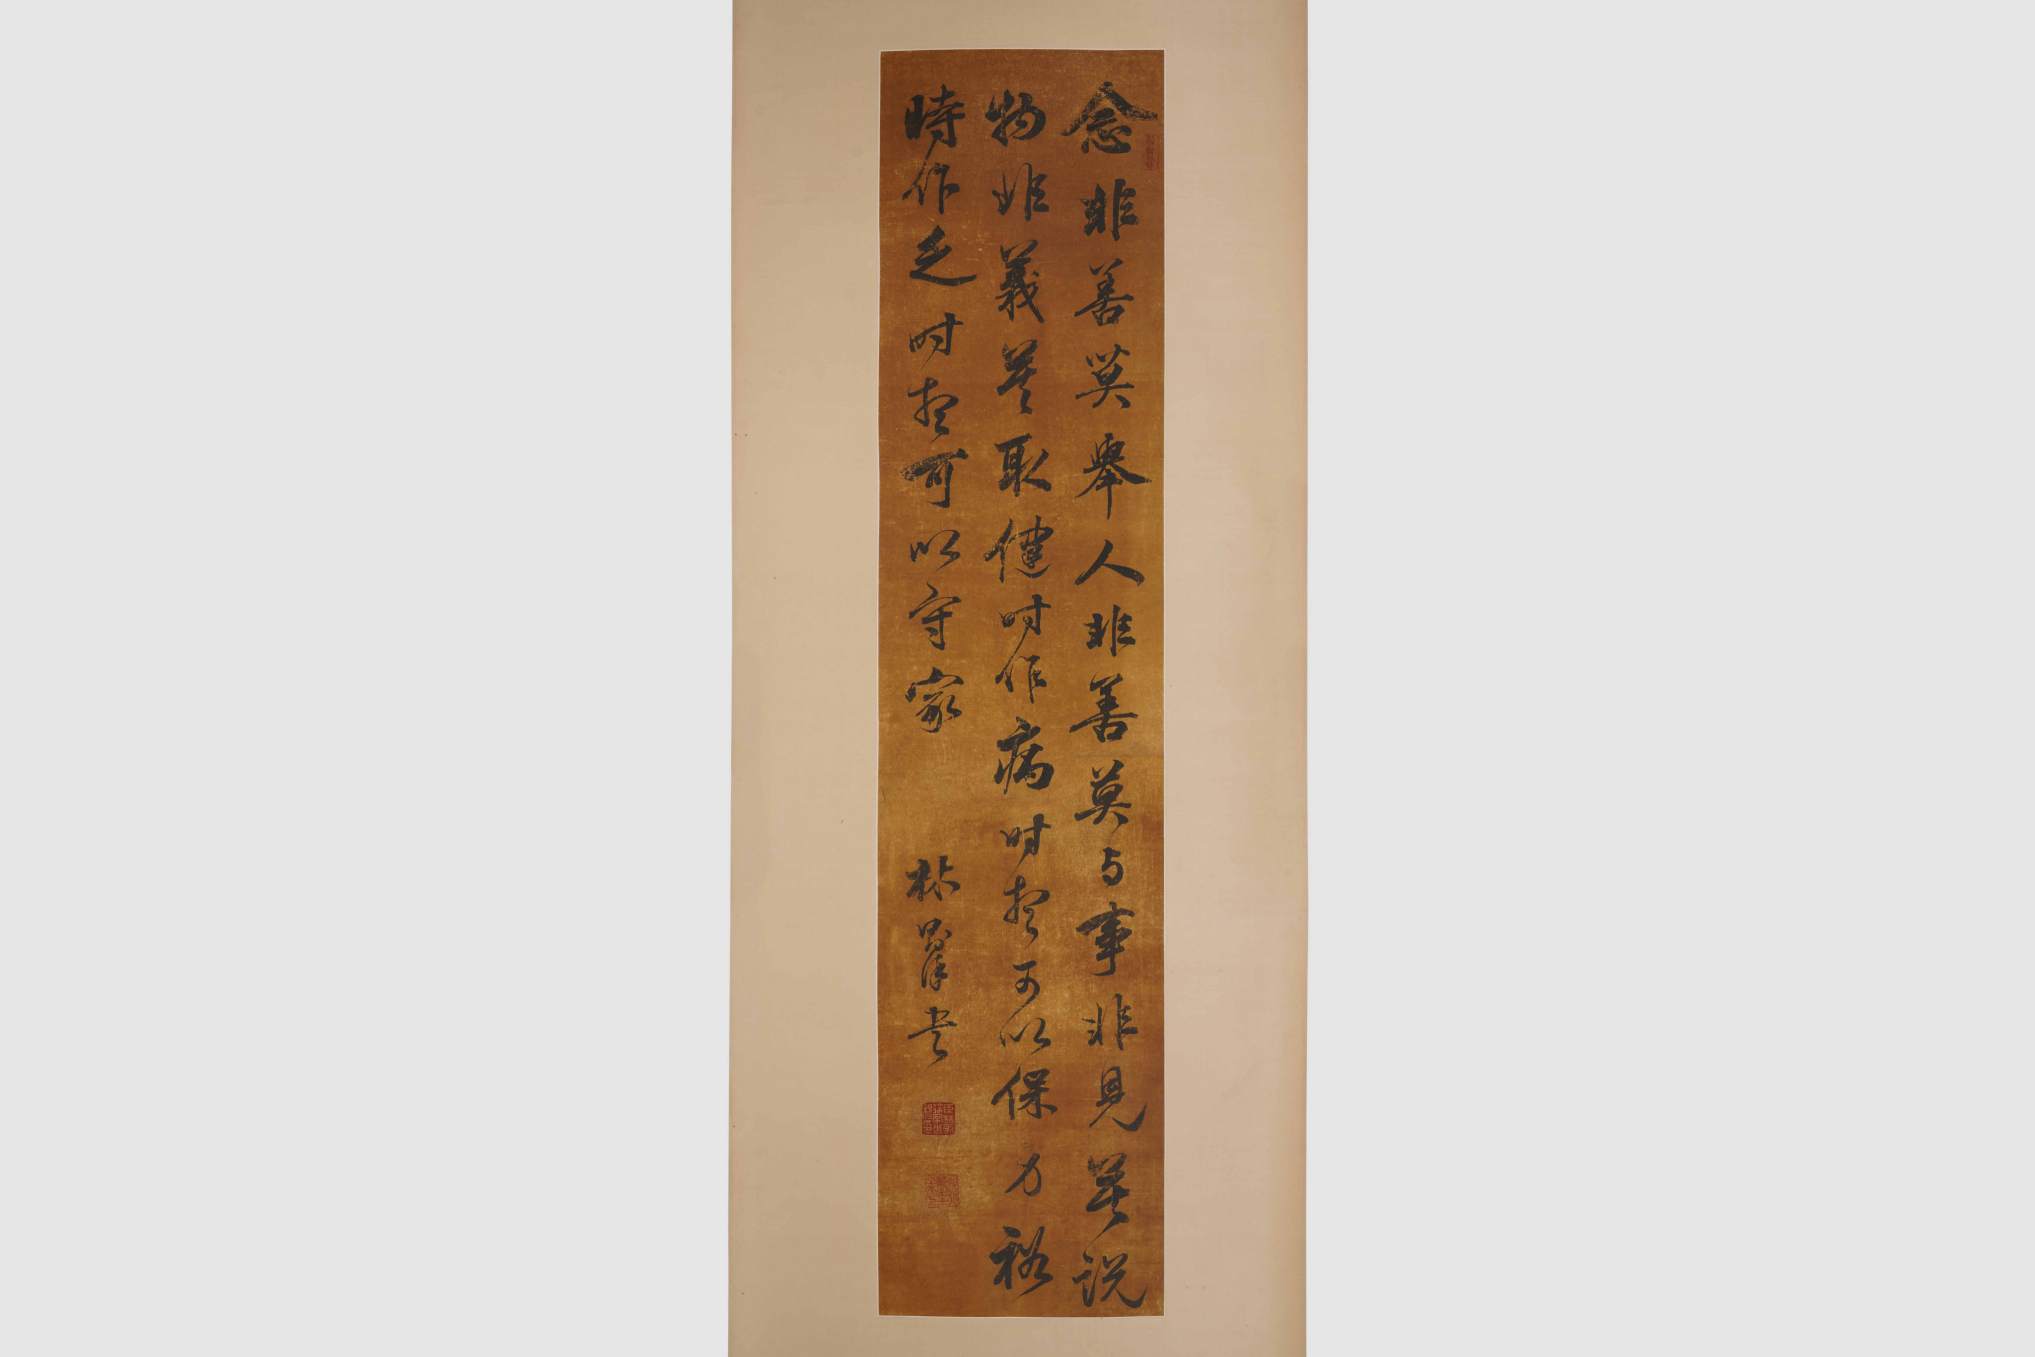 念非善莫舉人非善莫与事非見莫说
物非義莫取健时作病时想可以保身裕
時作乏时想可以守家 林則徐书